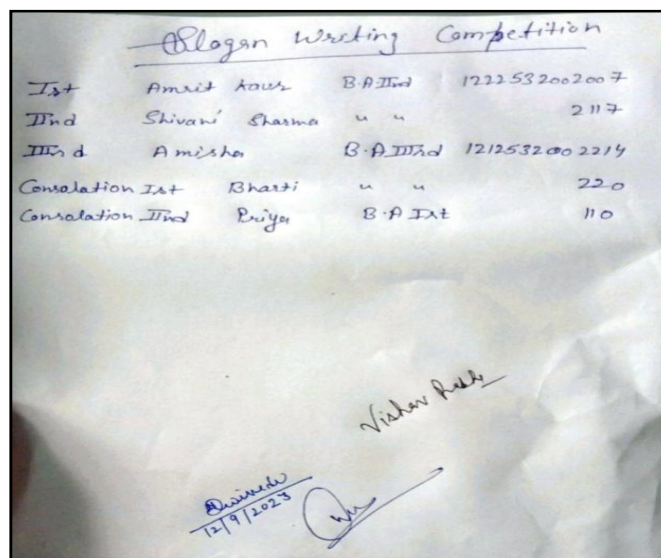 Slogan Writing Competition
Ist Amrit Kaur B.A IInd 1222532002007
IInd Shivani Sharma " " 2117
IIIrd Amisha B.A IIIrd 1212532002214
Consolation Ist Bharti " " 220
Consolation IInd Priya B.A Ist 110
Vishav
12/9/2023